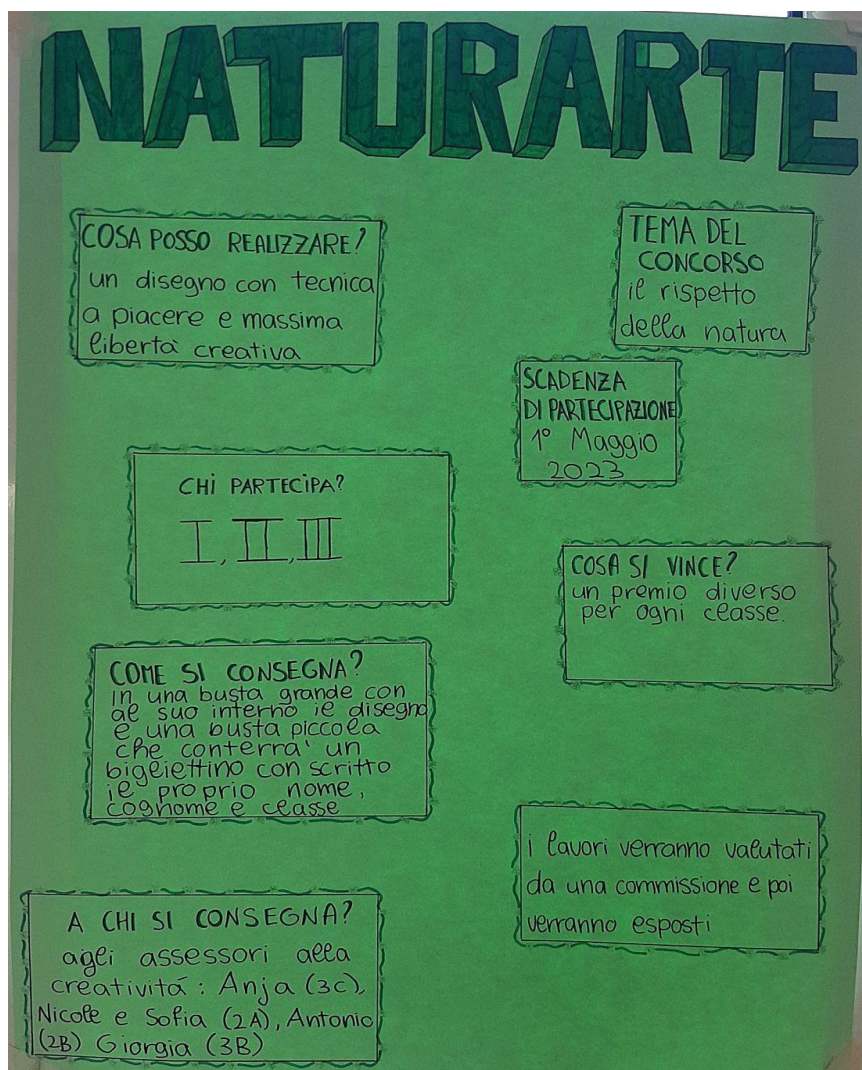 NATURARTE
COSA POSSO REALIZZARE?
un disegno con tecnica
a piacere e massima
libertà creativa
TEMA DEL
CONCORSO
il rispetto
della natura
SCADENZA
DI PARTECIPAZIONE
1° Maggio
2023
CHI PARTECIPA?
I, II, III
COSA SI VINCE?
un premio diverso
per ogni classe.
COME SI CONSEGNA?
in una busta grande con
al suo interno il disegno
e una busta piccola
che conterrà un
bigliettino con scritto
il proprio nome,
cognome e classe
i lavori verranno valutati
da una commissione e poi
verranno esposti
A CHI SI CONSEGNA?
agli assessori alla
creatività: Anja (3C),
Nicole e Sofia (2A), Antonio
(2B) Giorgia (3B)